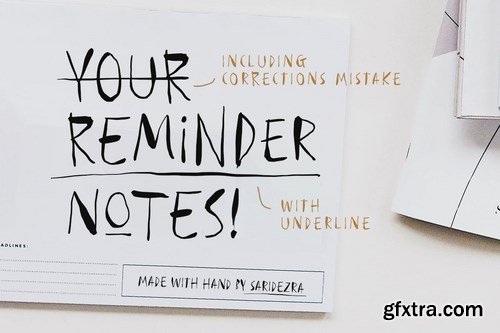 YOUR
REMINDER
NOTES!
INCLUDING
CORRECTIONS MISTAKE
WITH
UNDERLINE
ADLINES:
MADE WITH HAND BY SARIDEZRA
gfxtra.com